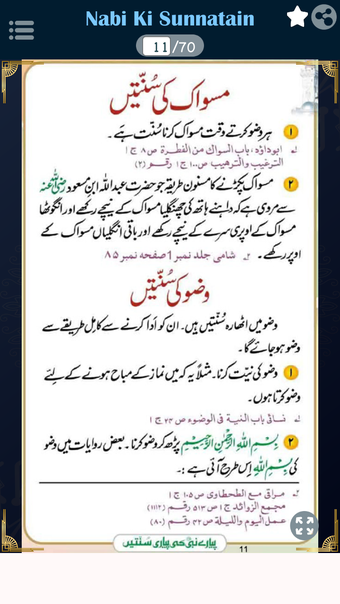 Nabi Ki Sunnatain
11/70
مسواک کی سُنّتیں
۱ ہر وضو کرتے وقت مسواک کرنا سُنّت ہے ۔
ابوداؤد، باب السواک من الفطرة ص ۸ ج ۱
الترغیب والترھیب ص ۱۰۰ ج ۱ رقم (۲)
۲ مسواک پکڑنے کا مسنون طریقہ جو حضرت عبداللہ ابنِ مسعود رضی اللہ عنہ
سے مروی ہے کہ داہنے ہاتھ کی چھنگلیا مسواک کے نیچے رکھے اور انگوٹھا
مسواک کے اوپری سرے کے نیچے رکھے اور باقی انگلیاں مسواک کے
اوپر رکھے ۔ ۲ شامی جلد نمبر 1 صفحہ نمبر ۸۵
وضو کی سُنّتیں
وضو میں اٹھارہ سُنّتیں ہیں ۔ ان کو اَدا کرنے سے کامِل طریقے سے
وضو ہو جائے گا ۔
۱ وضو کی نیّت کرنا ۔ مثلاً یہ کہ میں نماز کے مباح ہونے کے لیٔے
وضو کرتا ہوں ۔
نسائی باب النیة فی الوضوء ص ۲۴ ج ۱
۲ بِسْمِ اللّٰہِ الرَّحْمٰنِ الرَّحِیْمِ پڑھ کر وضو کرنا ۔ بعض روایات میں وضو
کی بِسْمِ اللّٰہِ اِس طرح آئی ہے :-
مراقی مع الطحطاوی ص ۱۰۵ ج ۱
مجمع الزوائد ج ۱ ص ۵۱۳ رقم (۱۱۱۲)
عمل الیوم واللیلة ص ۳۲ رقم (۸۰)
پیارے نبیؐ کی پیاری سُنّتیں
11